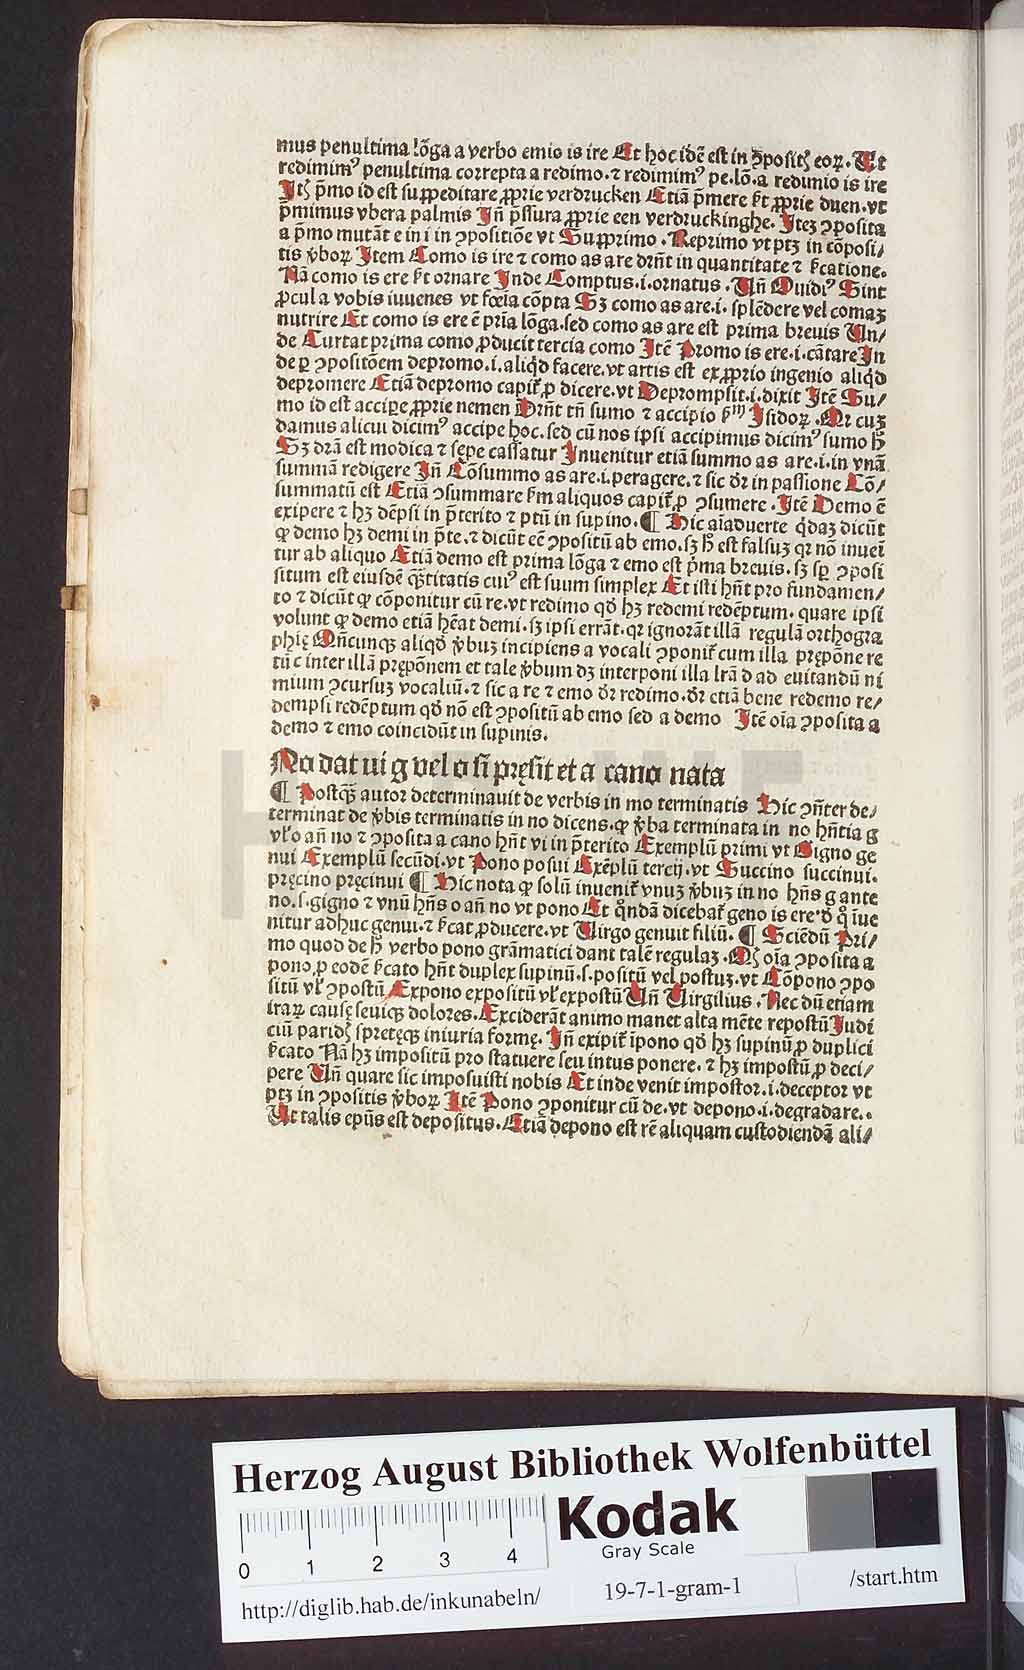 mus penultima lõga a verbo emio is ire Et hoc idẽ est in ꝯpositꝭ eoꝝ. Ut
redimimꝰ penultima correpta a redimo. ⁊ redimimꝰ pe. lõ. a redimio is ire
Itꝭ p̄mo id est suppeditare ꝓprie verdrucken Etiã p̄mere ẜt ꝓprie duen. vt
p̄mimus vbera palmis Jñ p̄ssura ꝓprie een verdruckinghe. Itez ꝯposita
a p̄mo mutãt e in i in ꝯpositiõe vt Supprimo. Reprimo vt ptꝫ in cõposi⸗
tis v̾boꝝ Item Como is ire ⁊ como as are dr̃nt in quantitate ⁊ ẜcatione.
Nã como is ere ẜt ornare Inde Comptus. i. ornatus. Uñ Ouidiꝰ Sint
ꝓcul a vobis iuuenes vt fœĩa cõpta Sꝫ como as are. i. splẽdere vel comaꝫ
nutrire Et como is ere ẽ pr̃ia lõga. sed como as are est prima breuis Un⸗
de Curtat prima como ꝓducit tercia como Itẽ Promo is ere. i. cãtare In
de ꝑ ꝯpositõem depromo. i. aliqd̃ facere. vt artis est ex ꝓprio ingenio aliqd̃
depromere Etiã depromo capit᷑ ꝓ dicere. vt Deprompsit. i. dixit Itẽ Su⸗
mo id est accipe ꝓprie nemen Dr̃nt tñ sumo ⁊ accipio ẜm Isidoꝝ. Qꝛ cuꝫ
damus alicui dicimꝰ accipe hoc. sed cũ nos ipsi accipimus dicimꝰ sumo h̃
Sꝫ dr̃ã est modica ⁊ sepe cassatur Inuenitur etiã summo as are. i. in vnã
summã redigere Iñ Cõsummo as are. i. peragere. ⁊ sic dr̃ in passione Cõ⸗
summatũ est Etiã ꝯsummare ẜm aliquos capit᷑ ꝓ ꝯsumere. Itẽ Demo ẽ
exipere ⁊ hꝫ dẽpsi in p̄terito ⁊ ptũ in supino. ¶ Hic aĩaduerte qd̃aꝫ dicũt
ꝙ demo hꝫ demi in p̄te. ⁊ dicũt eẽ ꝯpositũ ab emo. sꝫ h̃ est falsuꝫ qꝛ nõ inuei
tur ab aliquo Etiã demo est prima lõga ⁊ emo est p̃ma breuis. sꝫ sꝑ ꝯposi
situm est eiusdẽ qᷓ̃titatis cuiꝰ est suum simplex Et isti hñt pro fundamen⸗
to ⁊ dicũt ꝙ cõponitur cũ re. vt redimo qd̃ hꝫ redemi redẽptum. quare ipsi
volunt ꝙ demo etiã hẽat demi. sꝫ ipsi errãt. qꝛ ignorãt illã regulã orthogra
phię Qñcunqꝫ aliqd̃ v̾buꝫ incipiens a vocali ꝯponit᷑ cum illa prępõne re
tũc inter illã prępõnem et tale v̾bum dꝫ interponi illa lr̃ã d ad euitandũ ni
mium ꝯcursuꝫ vocaliũ. ⁊ sic a re ⁊ emo dr̃ redimo. dr̃ etiã bene redemo re⸗
dempsi redẽptum qd̃ nõ est ꝯpositũ ab emo sed a demo Itẽ oĩa ꝯposita a
demo ⁊ emo coincidũt in supinis.
No dat ui g vel o si pręsit et a cano nata
¶ Postqᷓꝫ autor determinauit de verbis in mo terminatis Hic ꝯñter de⸗
terminat de v̾bis terminatis in no dicens. ꝙ v̾ba terminata in no hñtia g
vl̾ o añ no ⁊ ꝯposita a cano hñt vi in p̄terito Exemplũ primi vt Gigno ge
nui Exemplũ secũdi. vt Pono posui Exẽplũ tercij. vt Succino succinui.
pręcino pręcinui ¶ Hic nota ꝙ solũ inuenit᷑ vnuꝫ v̾buꝫ in no hñs g ante
no. s. gigno ⁊ vnũ hñs o añ no vt pono Et qñdã dicebat᷑ geno is ere. d̾ q̊ iue
nitur adhuc genui. ⁊ ẜcat ꝓducere. vt Uirgo genuit filiũ. ¶ Sciẽdũ Pri⸗
mo quod de h̃ verbo pono grãmatici dant talẽ regulaꝫ. Qꝫ oĩa ꝯposita a
pono. ꝑ eodẽ ẜcato hñt duplex supinũ. s. positũ vel postuꝫ. vt Cõpono ꝯpo
situ vl̾ ꝯpostũ Expono expositũ vl̾ expostũ Uñ Uirgilius. Nec dũ etiam
iraꝝ causę seuiqꝫ dolores. Exciderãt animo manet alta mẽte repostũ Iudi
ciũ paridꝭ spretęqꝫ iniuria formę. Iñ exipit᷑ ĩpono qd̃ hꝫ supinũ ꝓ duplici
ẜcato Nã hꝫ impositũ pro statuere seu intus ponere. ⁊ hꝫ impostũ ꝓ deci⸗
pere Uñ quare sic imposuisti nobis Et inde venit impostor. i. deceptor vt
ptꝫ in ꝯpositis v̾boꝝ Itẽ Pono ꝯponitur cũ de. vt depono. i. degradare..
Ut talis epũs est depositus. Etiã depono est rẽ aliquam custodiendã ali⸗
Herzog August Bibliothek Wolfenbüttel
0 1 2 3 4
Kodak
Gray Scale
http://diglib.hab.de/inkunabeln/ 19-7-1-gram-1 /start.htm
HAB WF